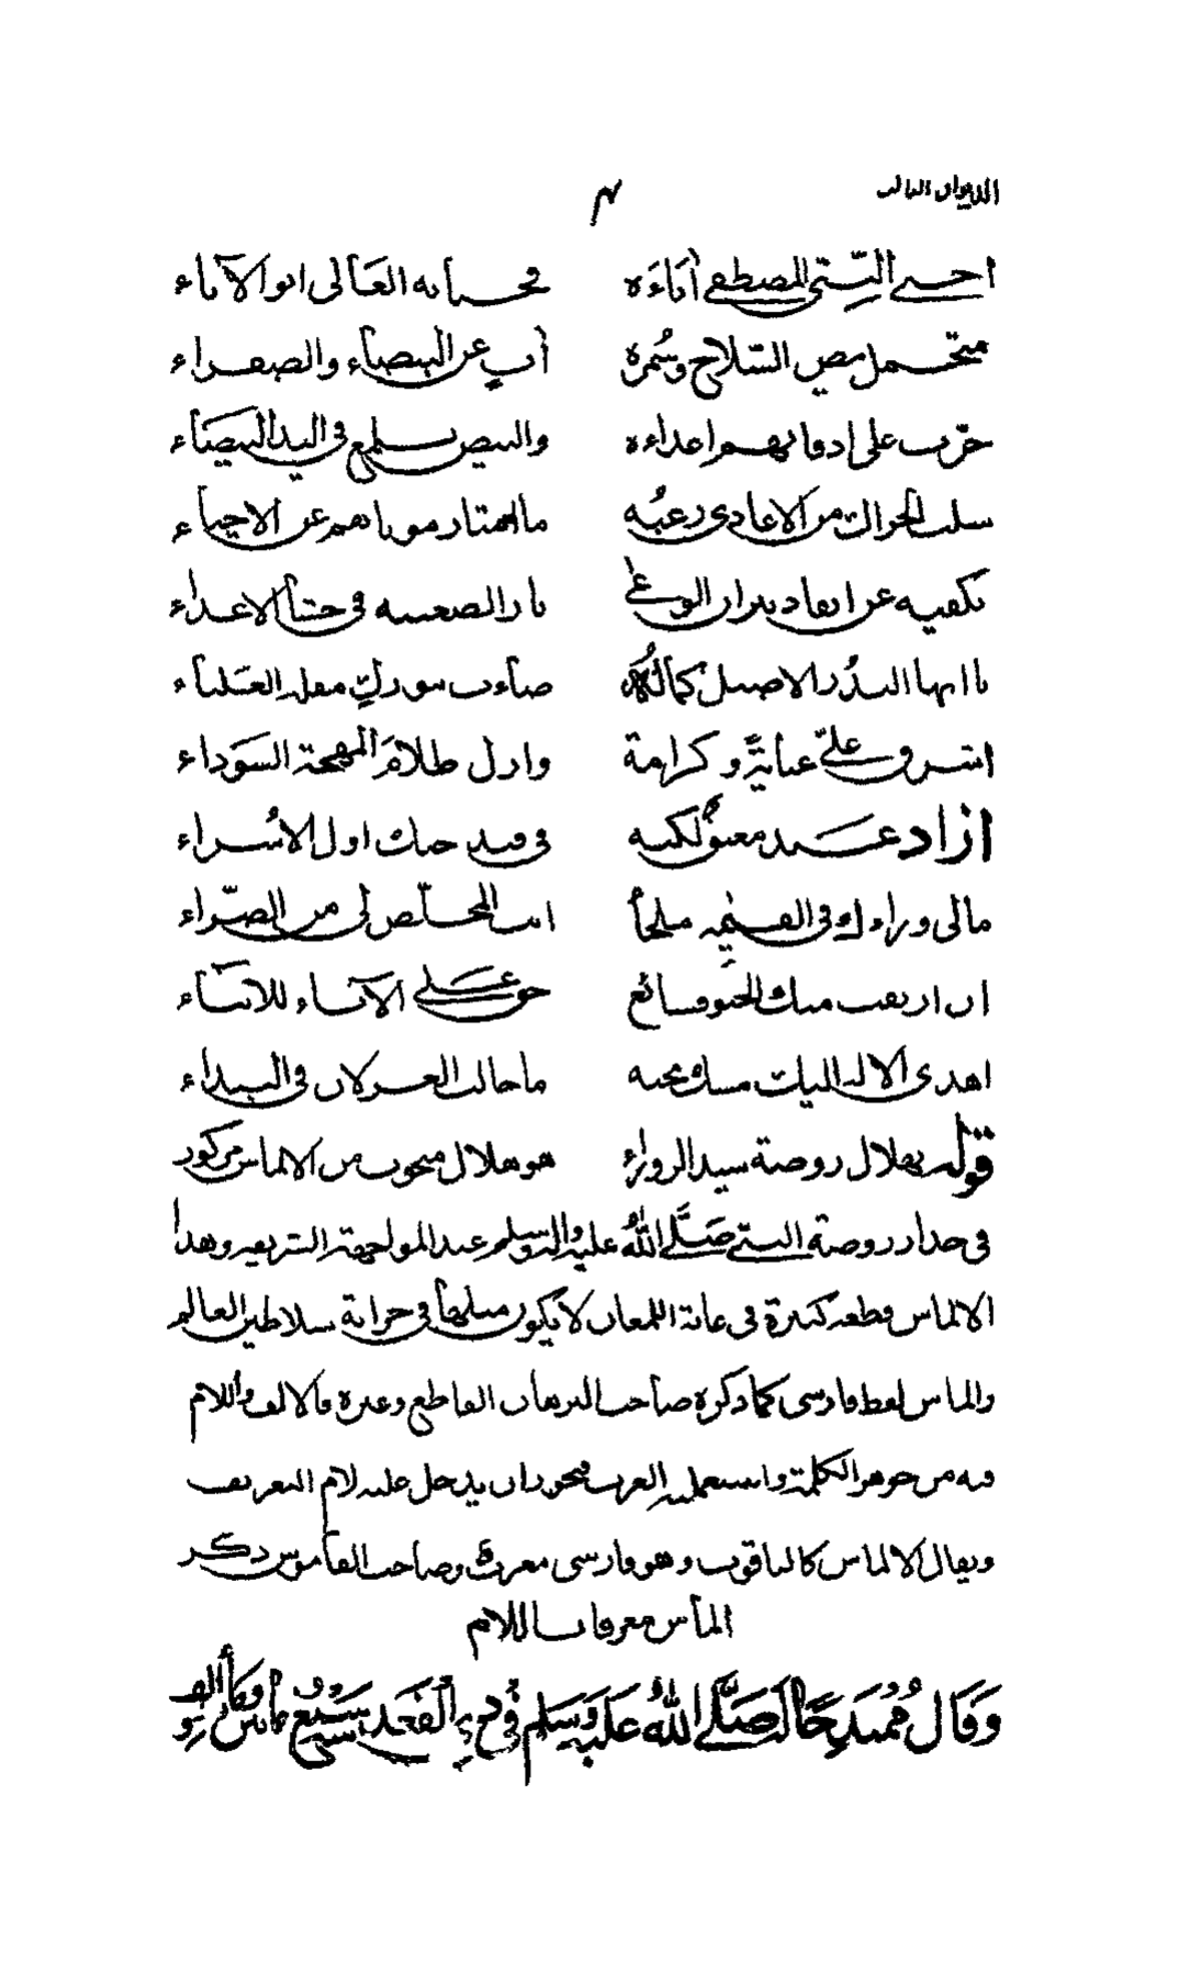 الديوان الثالث
٤
احيى النبي المصطفى آباءه فحياته العالى ابو الآباء
متحمل بيض السلاح وسمره آبٍ عن البيضاء والصفراء
حرب على اعداءه والبيض يسلمع فى اليد البيضاء
سلب الحراك من الاعادى رعبه ما امتاز موتاهم عن الاحياء
تكفيه عن ايقاد نيران الوغى نار الضغينه فى حشا الاعداء
يا ايها البدر الاصيل كماله ضاءت بنورك مقلة العلياء
اشرق علىّ عناية وكرامة وازل ظلام المهجة السوداء
ازاد عبد معتق لكنه فى قيد حبك اول الأسراء
مالى وراءك فى القيمه ملجأ انت المخلّص لى من الضرّاء
ان ارتقب منك الحنو فسائغ حق على الآباء للابناء
اهدى الاله اليك مسك تحيه ما جالت الغزلان فى البيداء
قوله بهلال روضة سيد الزوراء هو هلال منحوت من الالماس مركوز
فى جدار روضة النبى صَلَّى اللهُ عليه واله وسلم عند المواجهة الشريفه وهذا
الالماس قطعه كبيرة فى غاية اللمعان لا يكون مثلها فى خزانة سلاطين العالم
والماس لفظ فارسى كما ذكره صاحب البرهان القاطع وغيره فالالف واللام
فيه من جوهر الكلمة واستعمله العرب فيجوز ان يدخل عليه لام التعريف
ويقال الالماس كالياقوت وهو فارسى معرب وصاحب القاموس ذكر
المأس معرفا باللام
وَقَالَ مُمتدِحًا لَهُ صَلَّى اللهُ عَلَيْهِ وَسَلَّم فى ذى القَعدة سَنة سبع مائس وَمأة والف